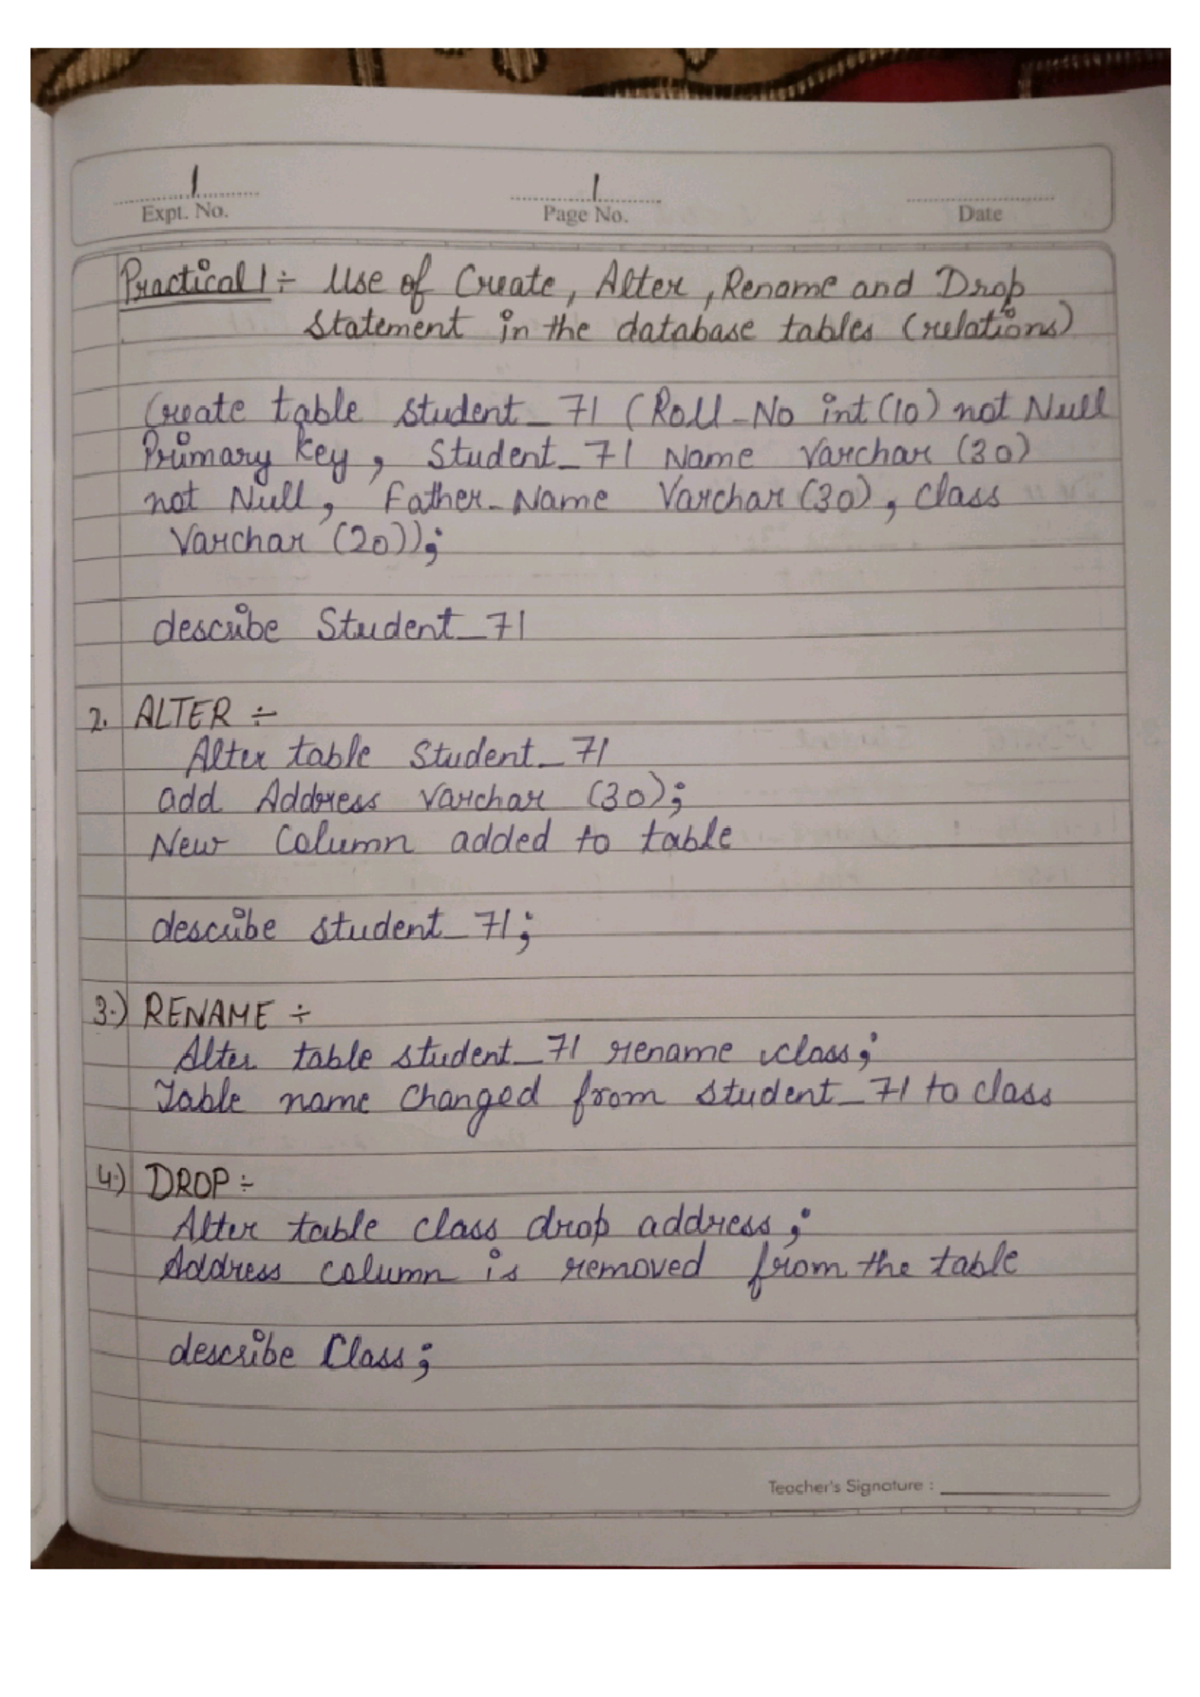 1
Expt. No.
1
Page No.
Date
Practical 1 ÷ Use of Create, Alter, Rename and Drop
Statement in the database tables (relations)
Create table student_71 (Roll-No int(10) not Null
Primary key, Student_71 Name Varchar (30)
not Null, Father-Name Varchar (30), class
Varchar (20));
describe Student_71
2. ALTER ÷
Alter table Student_71
add Address Varchar (30);
New Column added to table
describe student_71;
3.) RENAME ÷
Alter table student_71 rename class;
Table name Changed from student_71 to class
4.) DROP ÷
Alter table class drop address;
Address column is removed from the table
describe Class;
Teacher's Signature :